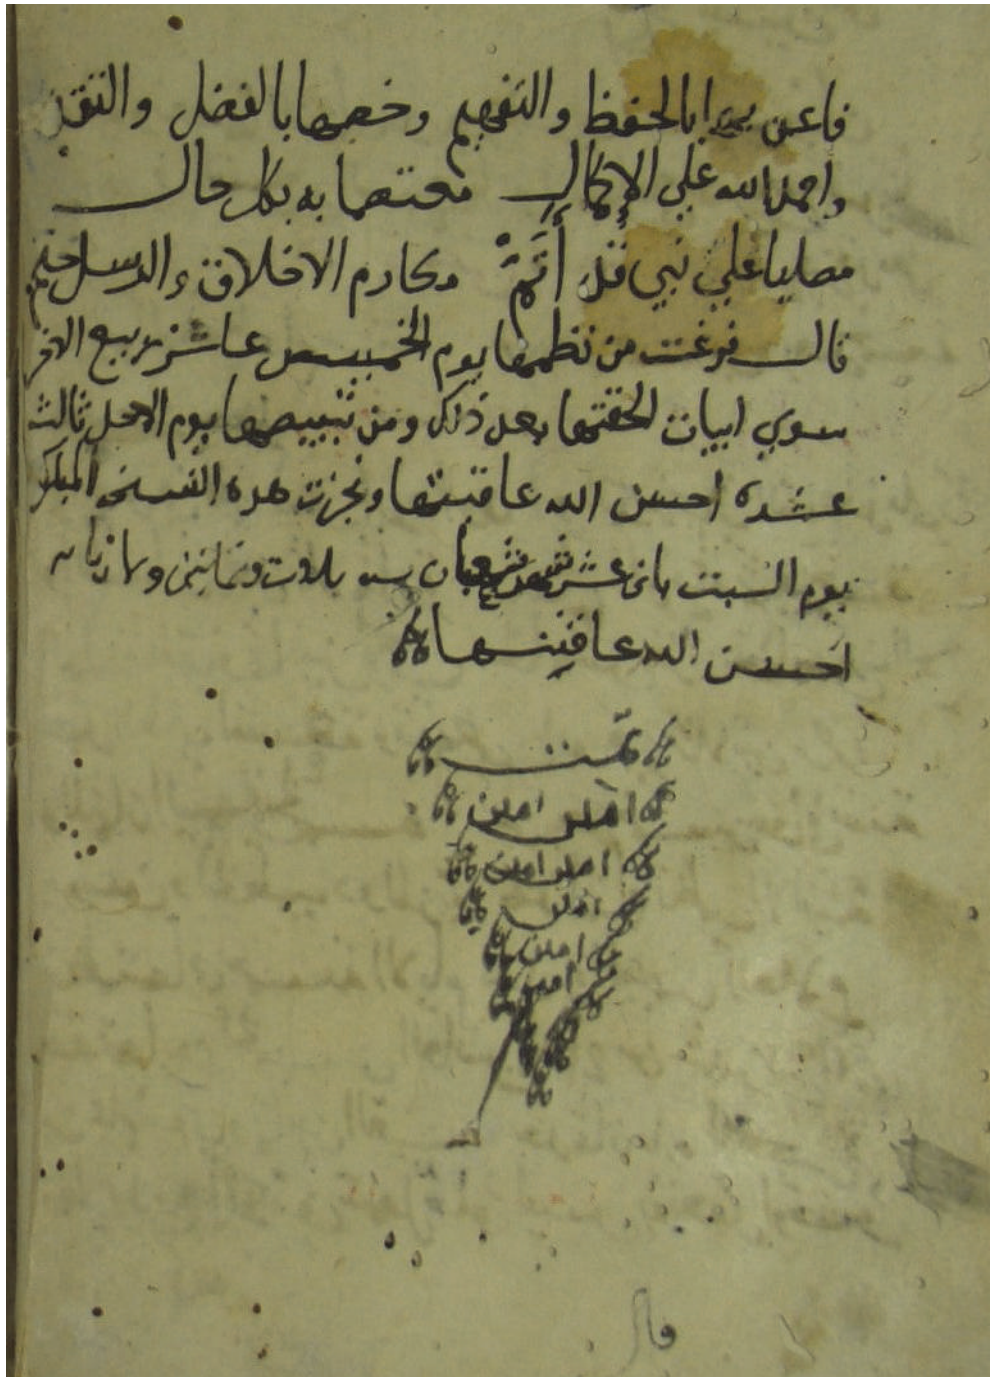 فاعن بها بالحفظ والتفهيم وخصها بالفضل والتقد
واحمد الله علي الاكمال معتصما به بكل حال
مصليا علي نبي قد أتم مكارم الاخلاق والرسل ختم
قال فرغت من نظمها يوم الخميس عاشر ربيع الاخر
سوي ابيات الحقتها بعد ذلك ومن تبييضها يوم الاحد ثالث
عشره احسن الله عاقبتها ونجزت هده النسخه المبارك
يوم السبت ثاني عشر شهر شعبان سنه ثلاث وثمانين وثمانمايه
احسن الله عاقبتها
تمت
امين امين
امين امين
امين
امين
امين
قال